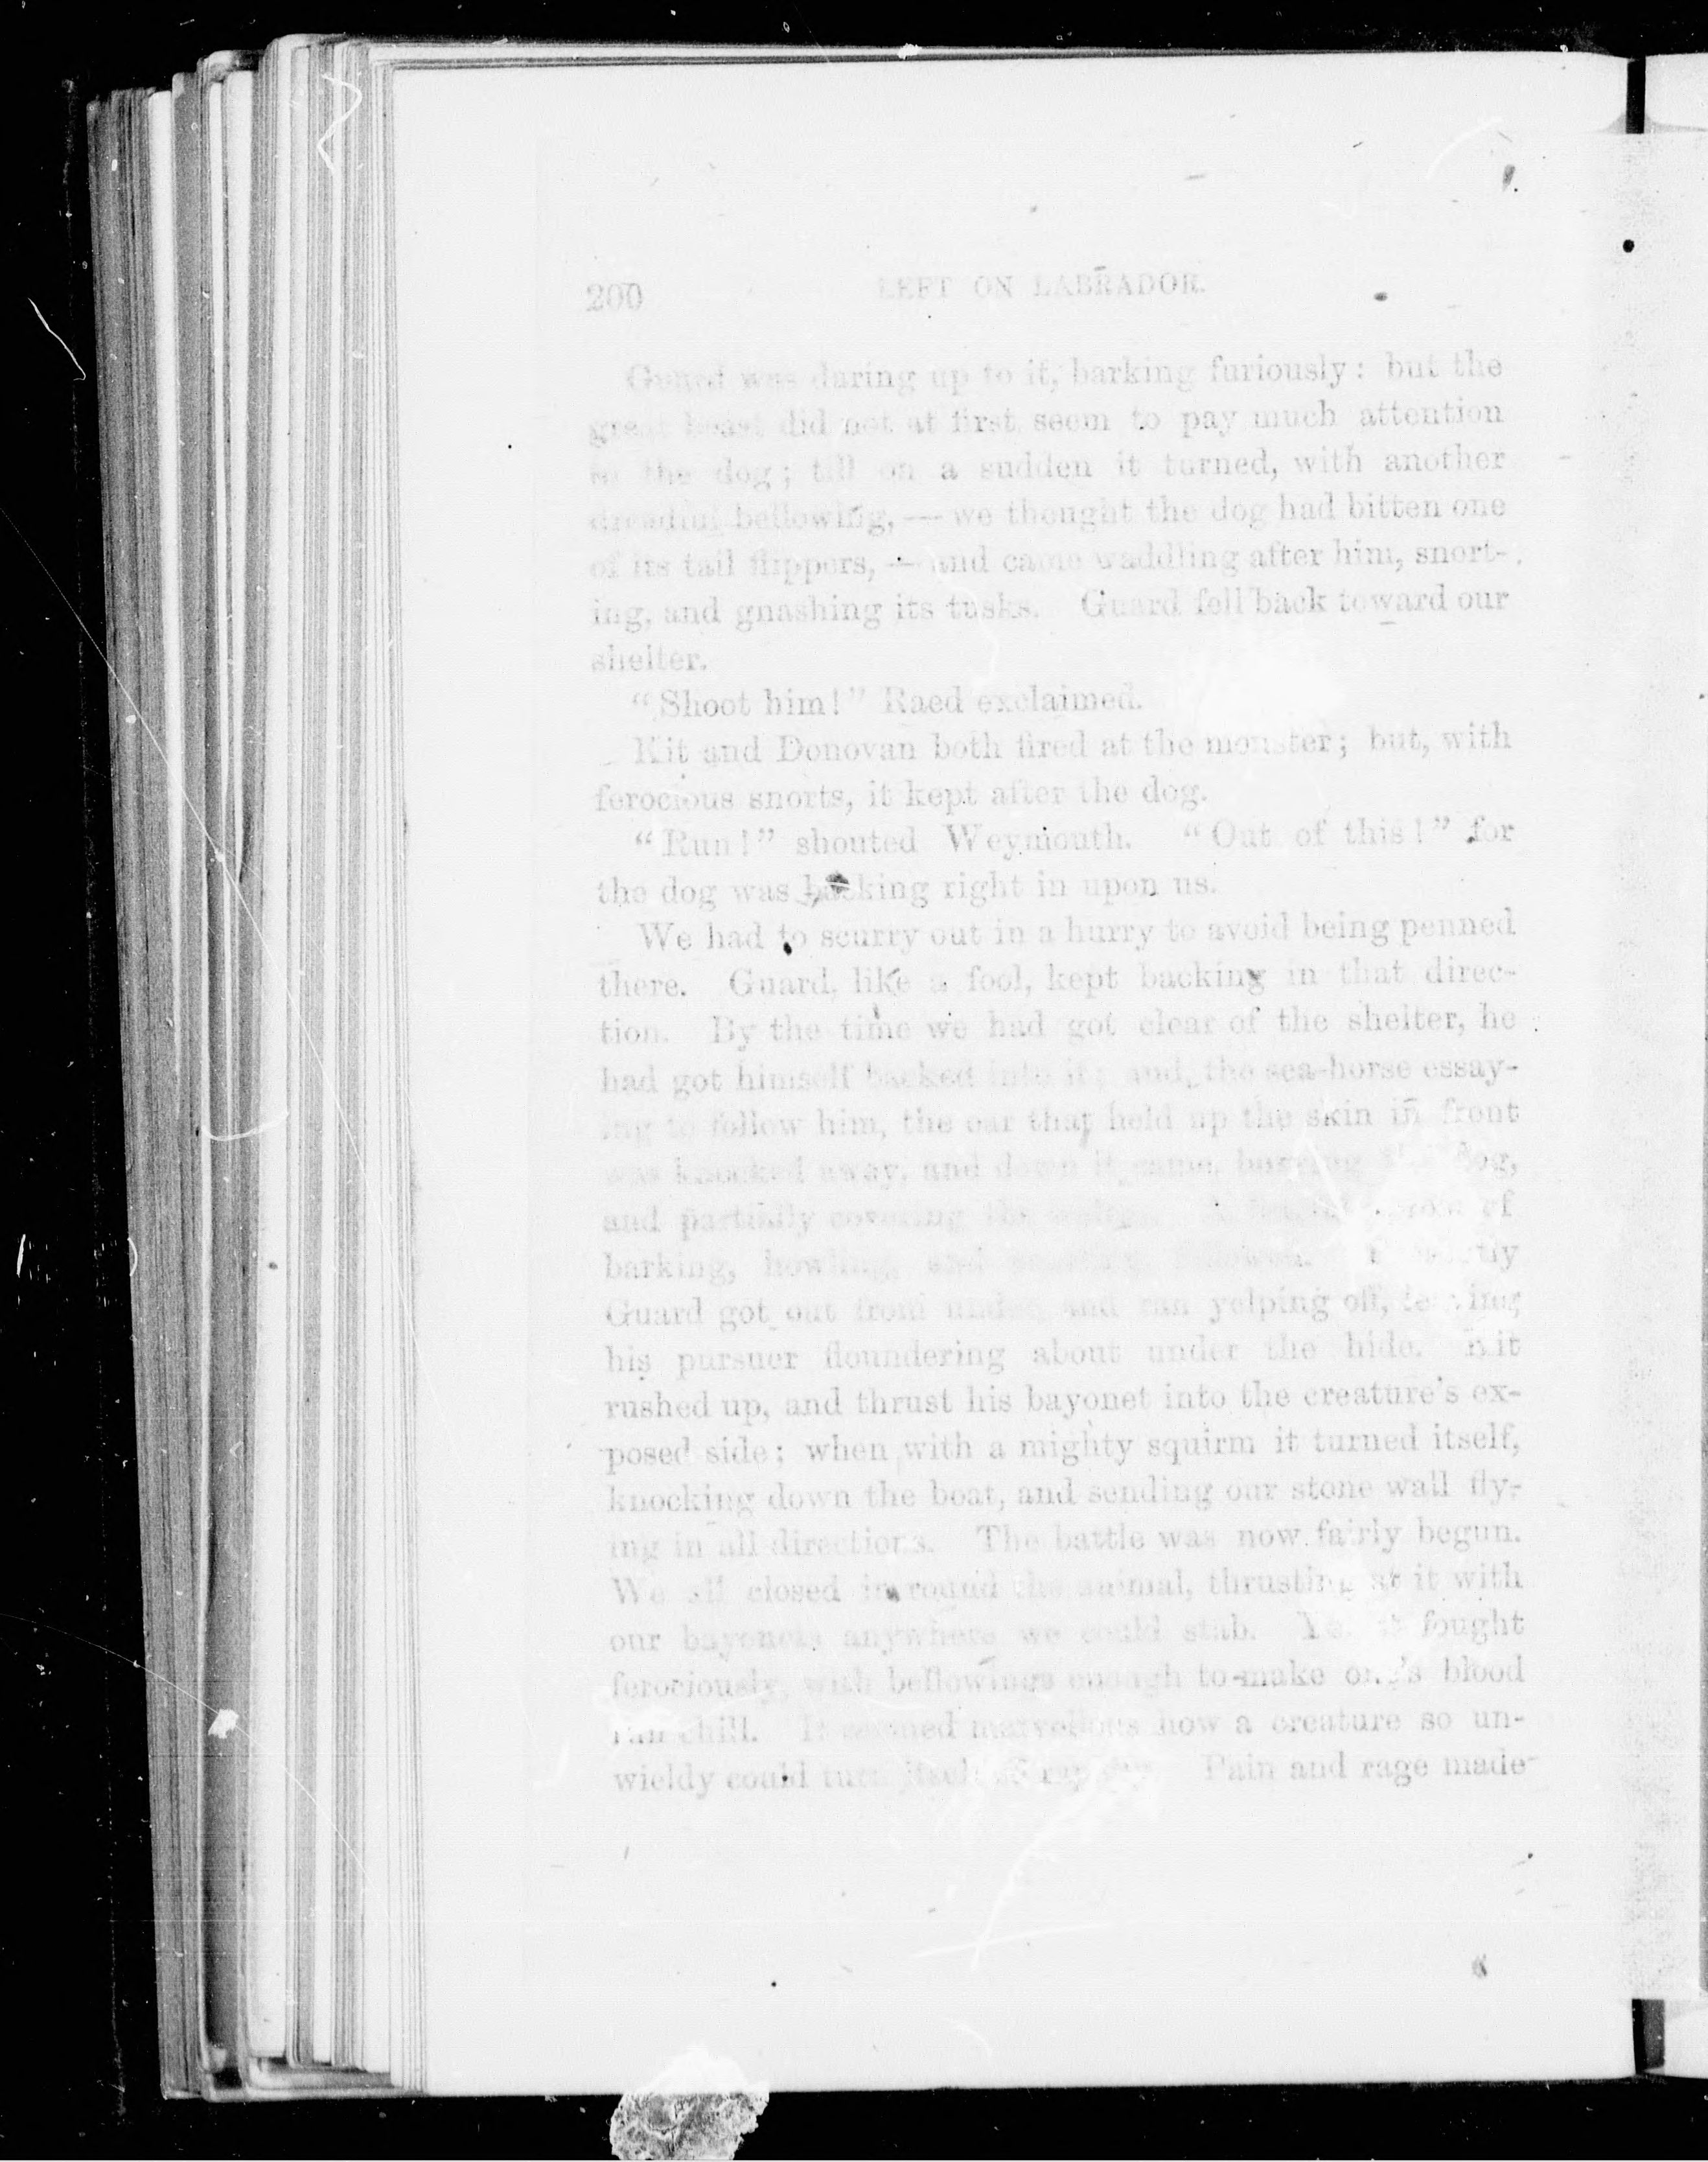 200 LEFT ON LABRADOR.
Guard was daring up to it, barking furiously: but the
great beast did not at first seem to pay much attention
to the dog; till on a sudden it turned, with another
dreadful bellowing,—we thought the dog had bitten one
of its tail flippers,—and came waddling after him, snort-
ing, and gnashing its tusks. Guard fell back toward our
shelter.
"Shoot him!" Raed exclaimed.
Kit and Donovan both fired at the monster; but, with
ferocious snorts, it kept after the dog.
"Run!" shouted Weymouth. "Out of this!" for
the dog was backing right in upon us.
We had to scurry out in a hurry to avoid being penned
there. Guard, like a fool, kept backing in that direc-
tion. By the time we had got clear of the shelter, he
had got himself backed into it; and, the sea-horse essay-
ing to follow him, the oar that held up the skin in front
was knocked away, and down it came, burying the dog,
and partially covering the of
barking, howling, and
Guard got out from under and ran yelping off, leaving
his pursuer floundering about under the hide. Kit
rushed up, and thrust his bayonet into the creature's ex-
posed side; when with a mighty squirm it turned itself,
knocking down the boat, and sending our stone wall fly-
ing in all directions. The battle was now fairly begun.
We all closed in round the animal, thrusting at it with
our bayonets anywhere we could stab. Yet it fought
ferociously, with bellowings enough to make one's blood
run chill. It seemed marvellous how a creature so un-
wieldy could turn itself so Pain and rage made